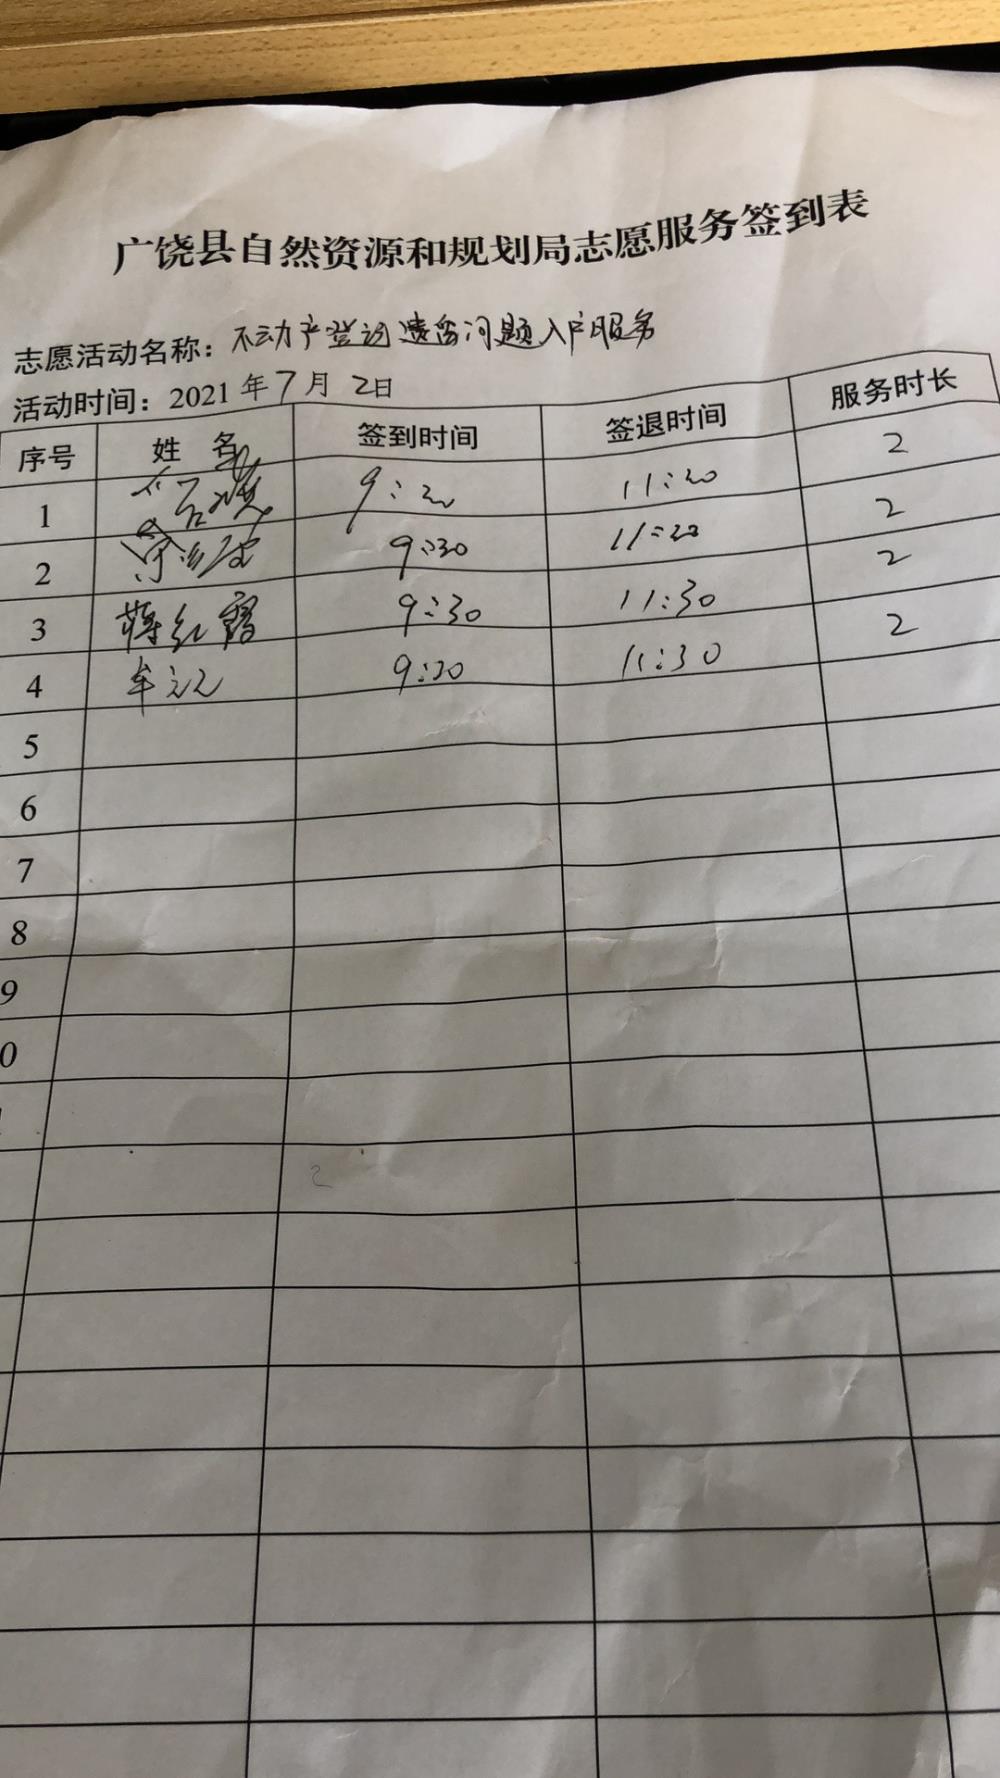 广饶县自然资源和规划局志愿服务签到表
志愿活动名称：不动产登记遗留问题入户服务
活动时间：2021年7月2日
序号 姓名 签到时间 签退时间 服务时长
1 11:20 2
2 9:30 11:20 2
3 蒋红霞 9:30 11:30 2
4 9:30 11:30 2
5
6
7
8
9
0